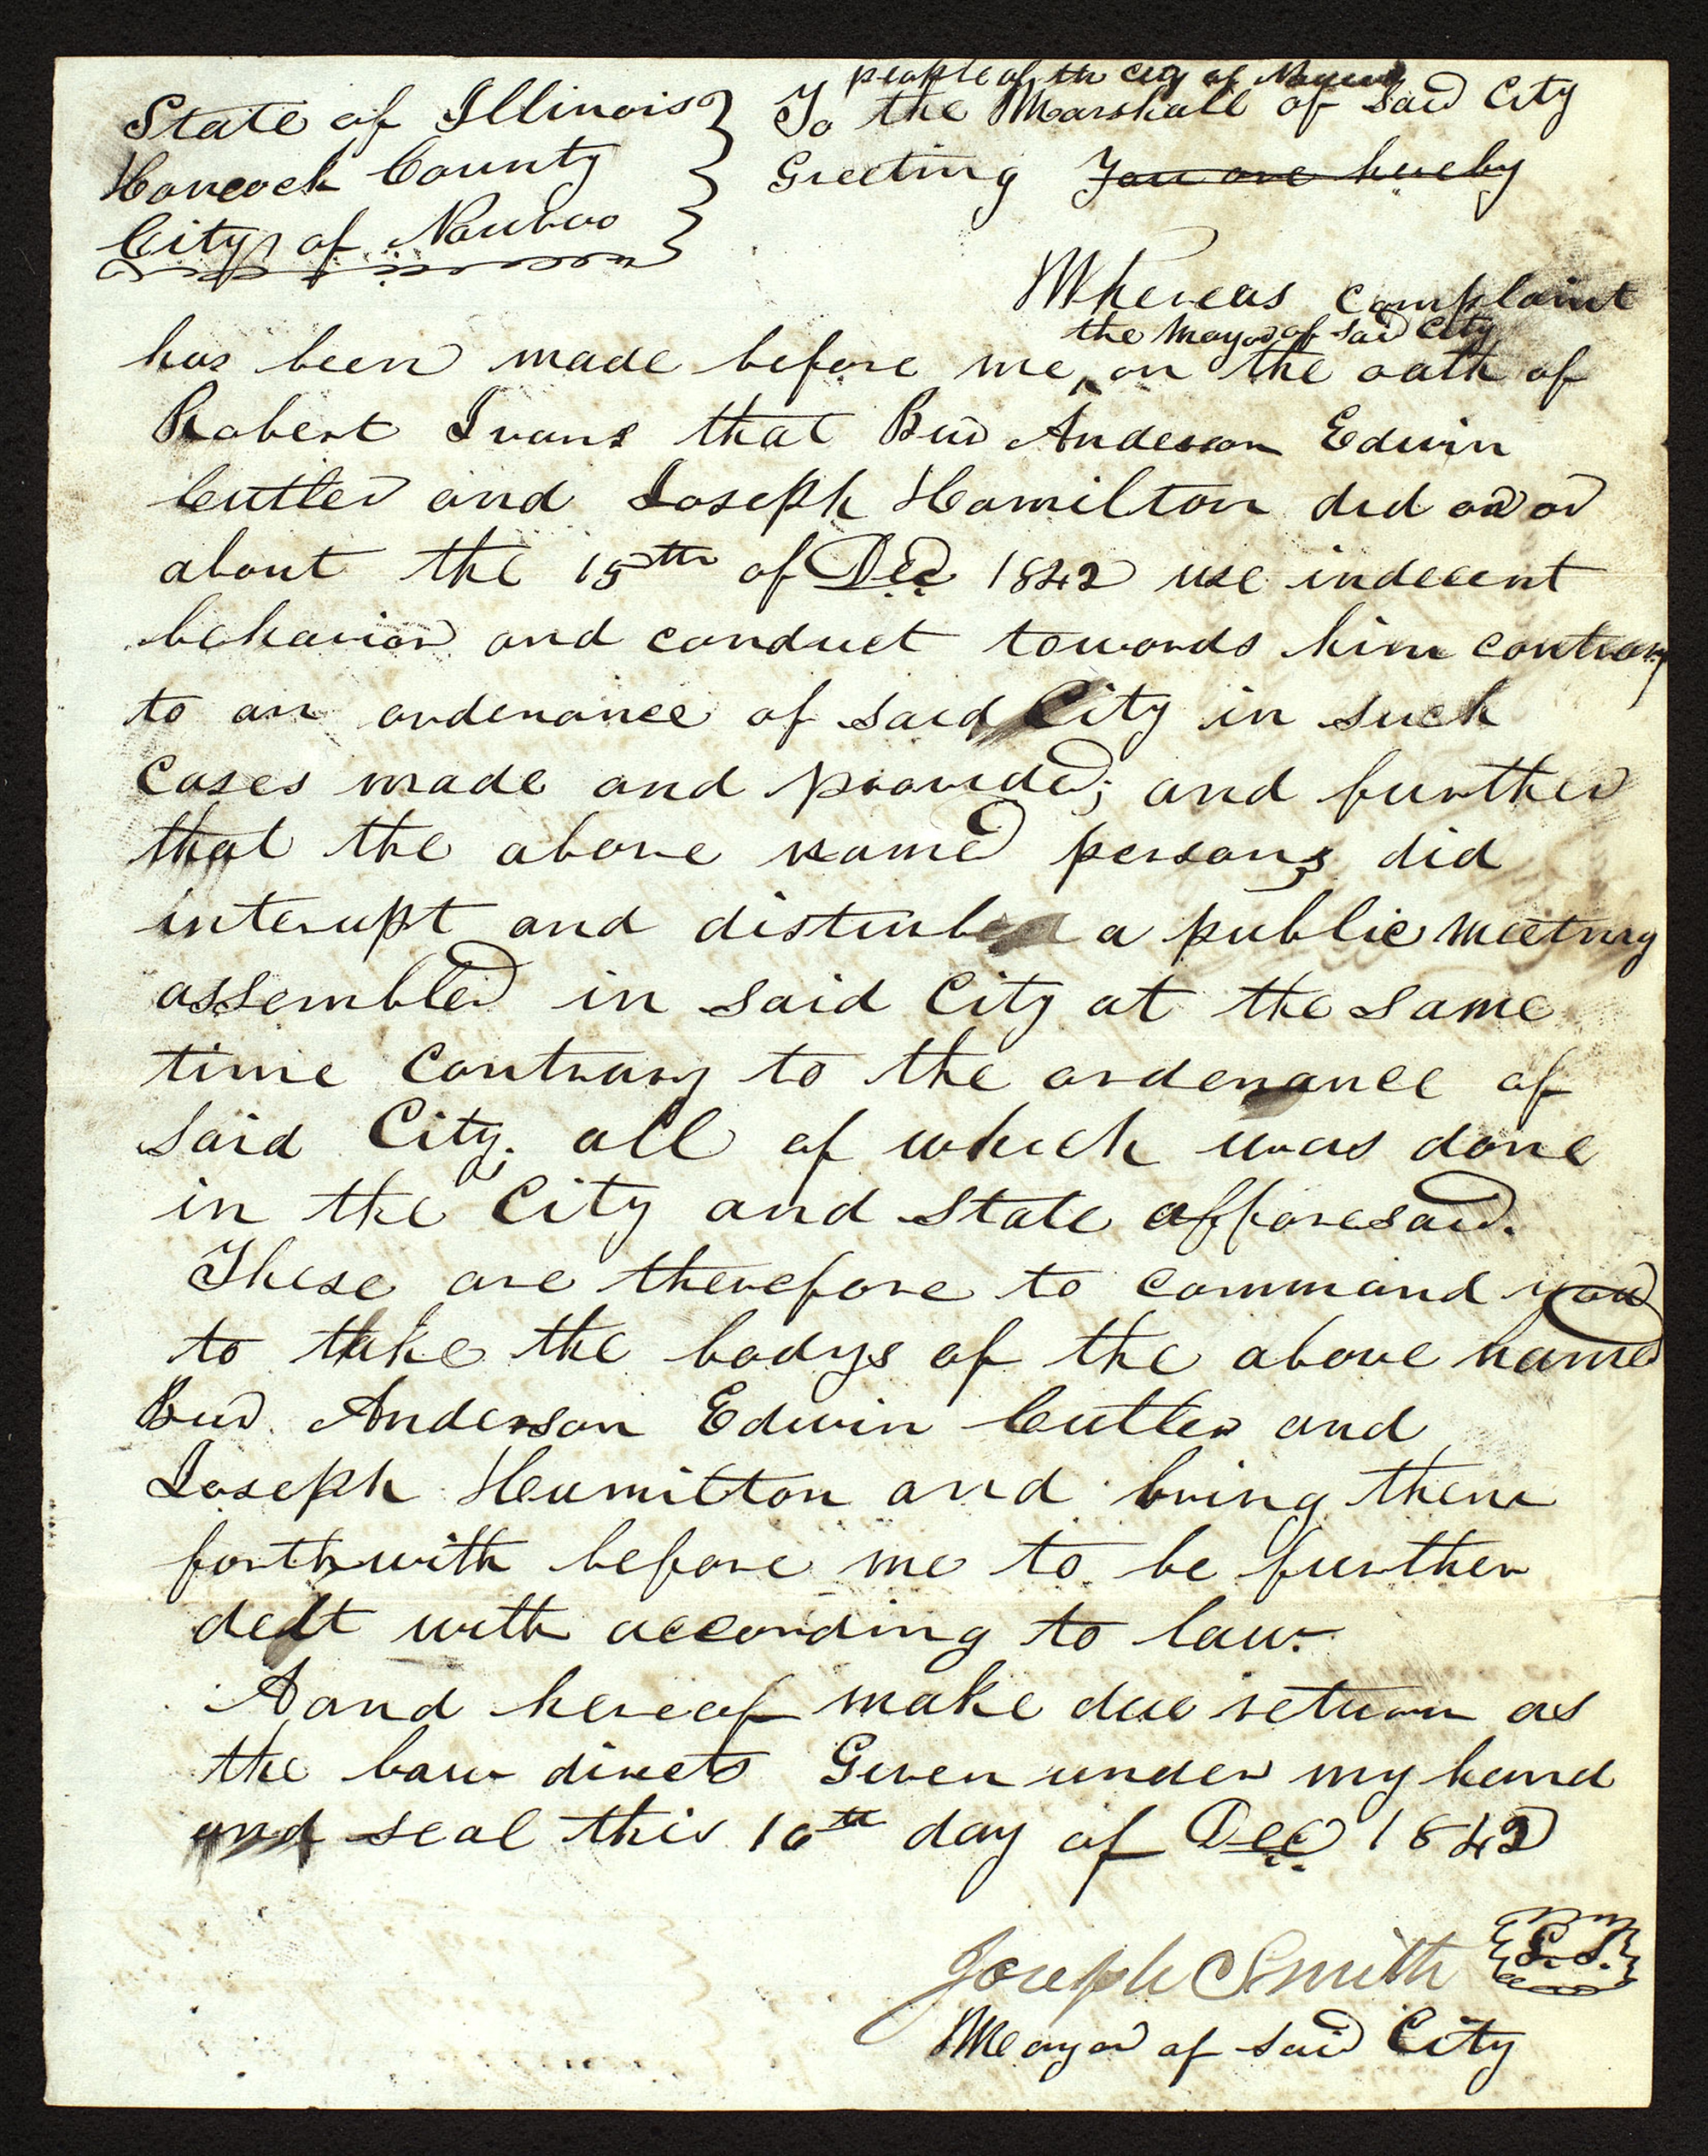 State of Illinois }
Hancock County }
City of Nauvoo }
people of the City of Nauvoo
To the Marshall of said City
Greeting You are hereby
Whereas complaint
the Mayor of said City
has been made before me ^ on the oath of
Robert Ivans that Bud Anderson Edwin
Cutler and Joseph Hamilton did on or
about the 15th of Dec 1842 use indecent
behavior and conduct towards him contrary
to an ordenance of said City in such
cases made and provided; and further
that the above named persons did
interupt and disturb a public meeting
assembled in said City at the same
time contrary to the ordenance of
said City. all of which was done
in the City and State afforesaid.
These are therefore to command you
to take the bodys of the above named
Bud Anderson Edwin Cutler and
Joseph Heamilton and bring them
forthwith before me to be further
delt with according to law.
Aand hereof make due return as
the law directs Given under my hand
and seal this 16th day of Dec 1842
Joseph Smith L.S.
Meayor of said City